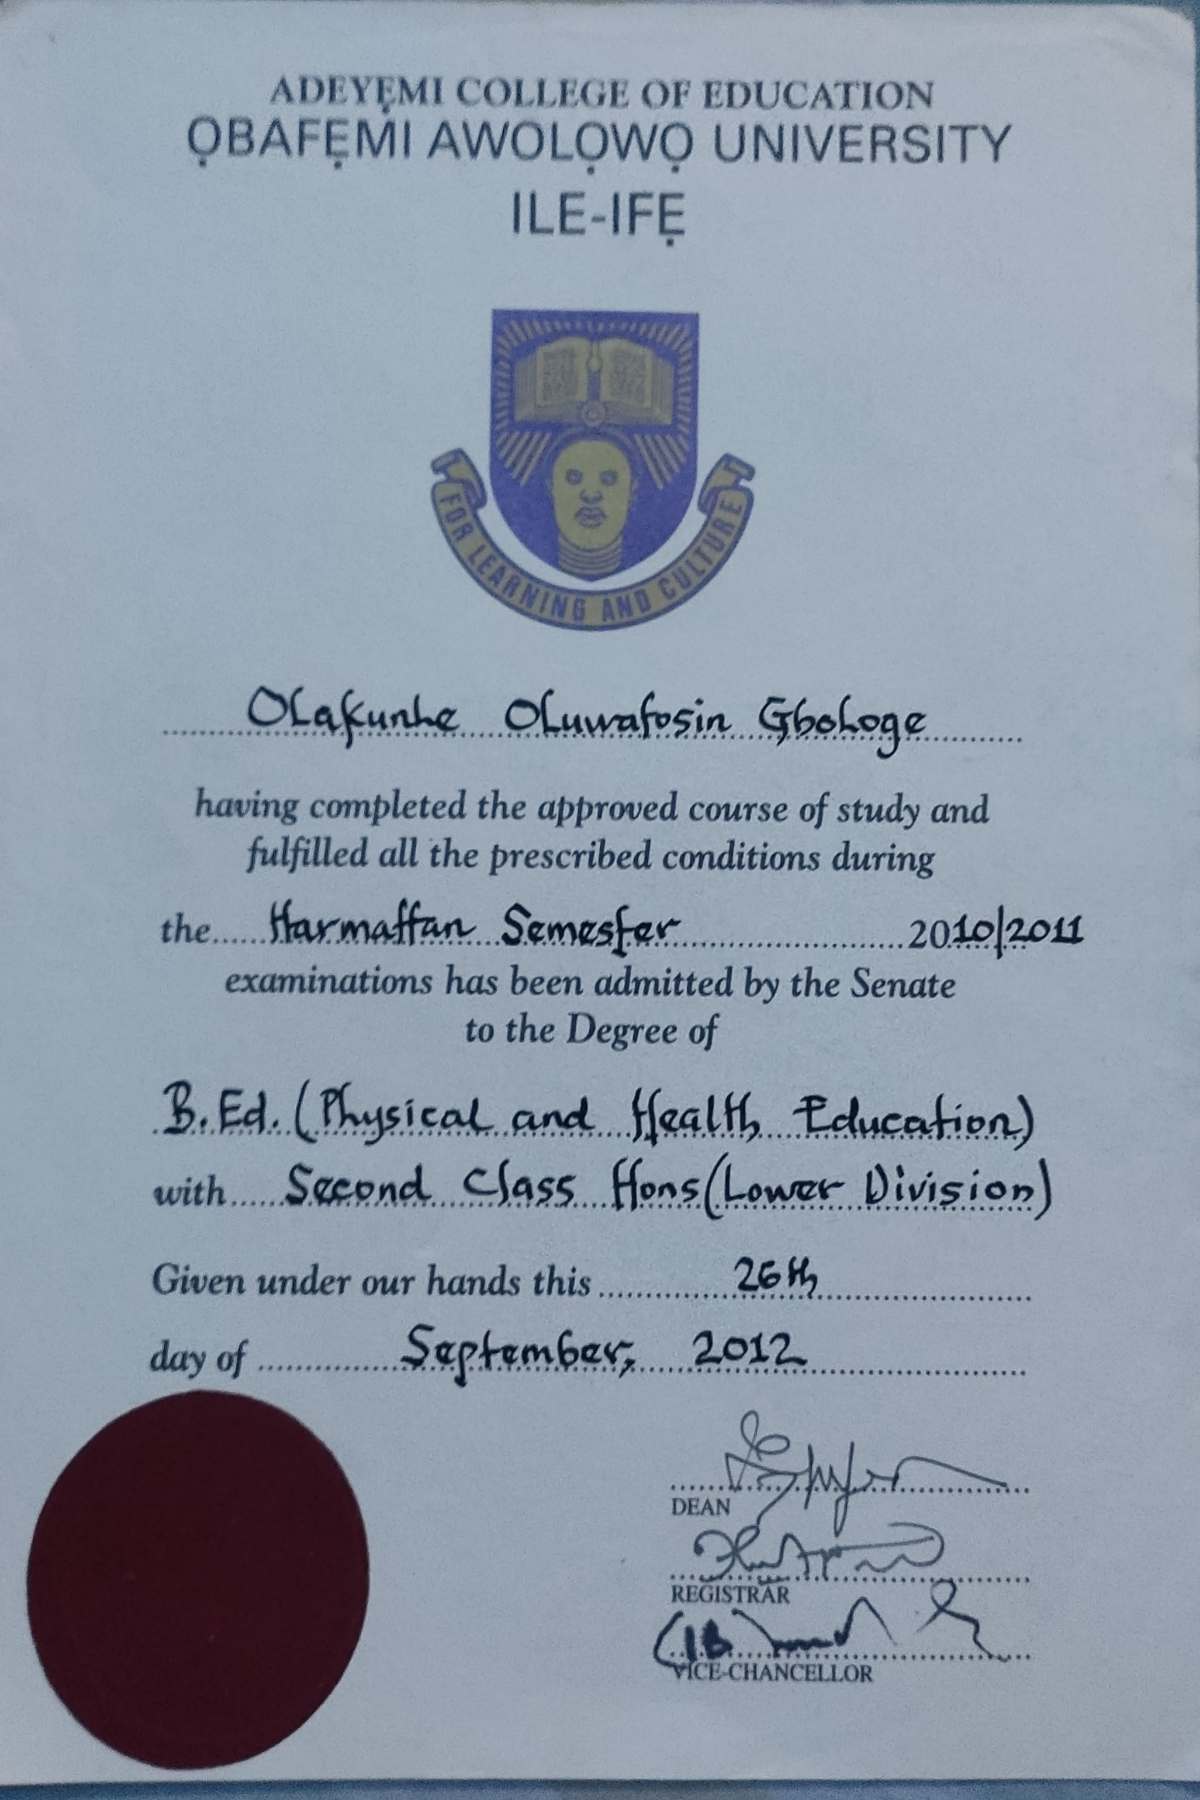 ADEYẸMI COLLEGE OF EDUCATION
ỌBAFẸMI AWOLỌWỌ UNIVERSITY
ILE-IFẸ
FOR LEARNING AND CULTURE
Olakunle Oluwafosin Gbologe
having completed the approved course of study and
fulfilled all the prescribed conditions during
the Harmattan Semester 2010/2011
examinations has been admitted by the Senate
to the Degree of
B.Ed. (Physical and Health Education)
with Second Class Hons (Lower Division)
Given under our hands this 26th
day of September, 2012
DEAN
REGISTRAR
VICE-CHANCELLOR